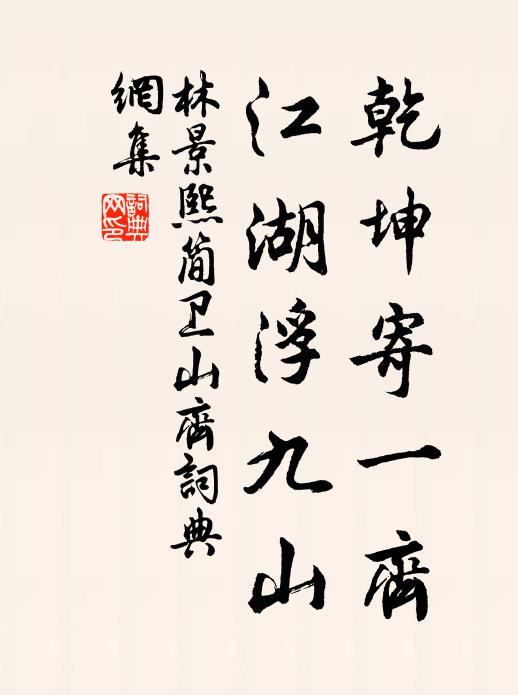 乾坤寄一齋
江湖浮九山
林景熙简卫山齋詞典
網集
詞典
网印